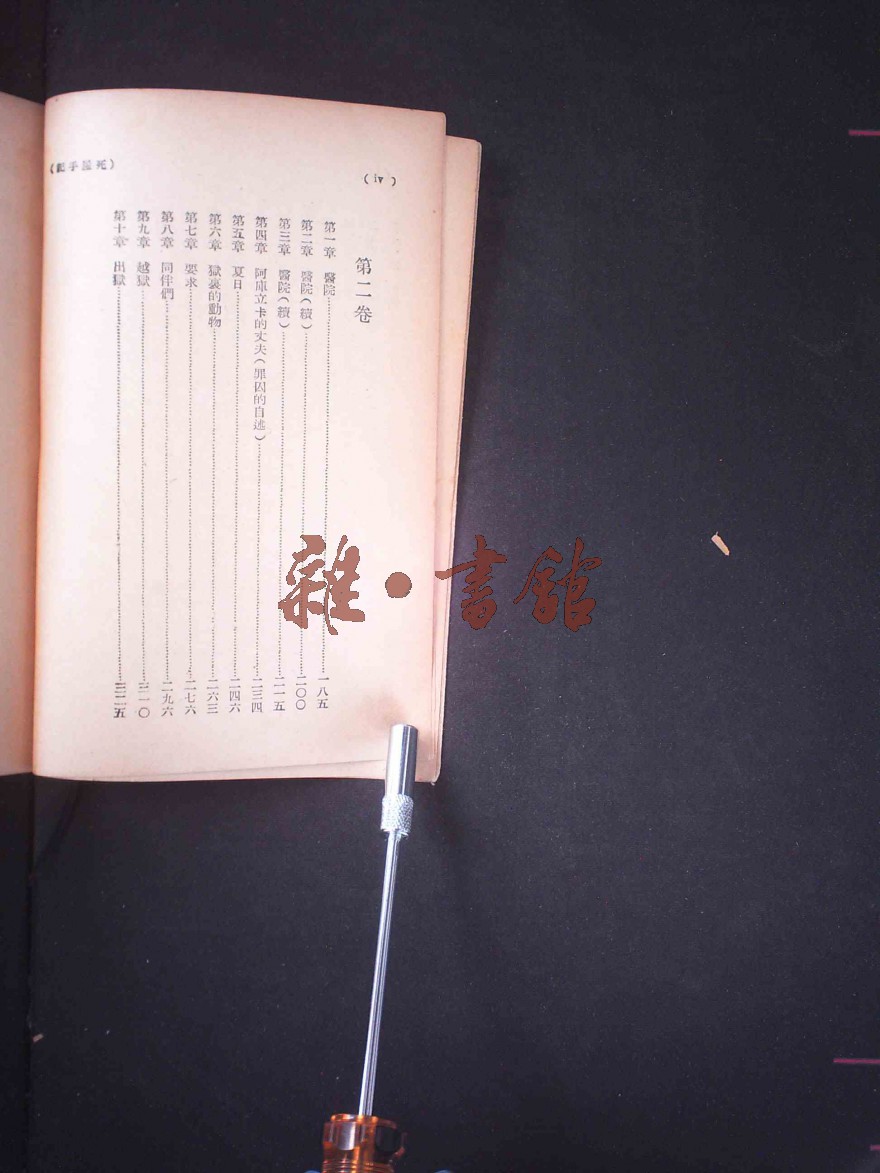 (死屋手記)
(iv)
第二卷
第一章 醫院……一八五
第二章 醫院(續)……二〇〇
第三章 醫院(續)……二一五
第四章 阿庫立卡的丈夫(罪囚的自述)……二三四
第五章 夏日……二四六
第六章 獄裏的動物……二六三
第七章 要求……二七六
第八章 同伴們……二九六
第九章 越獄……三一〇
第十章 出獄……三二五
雜·書館